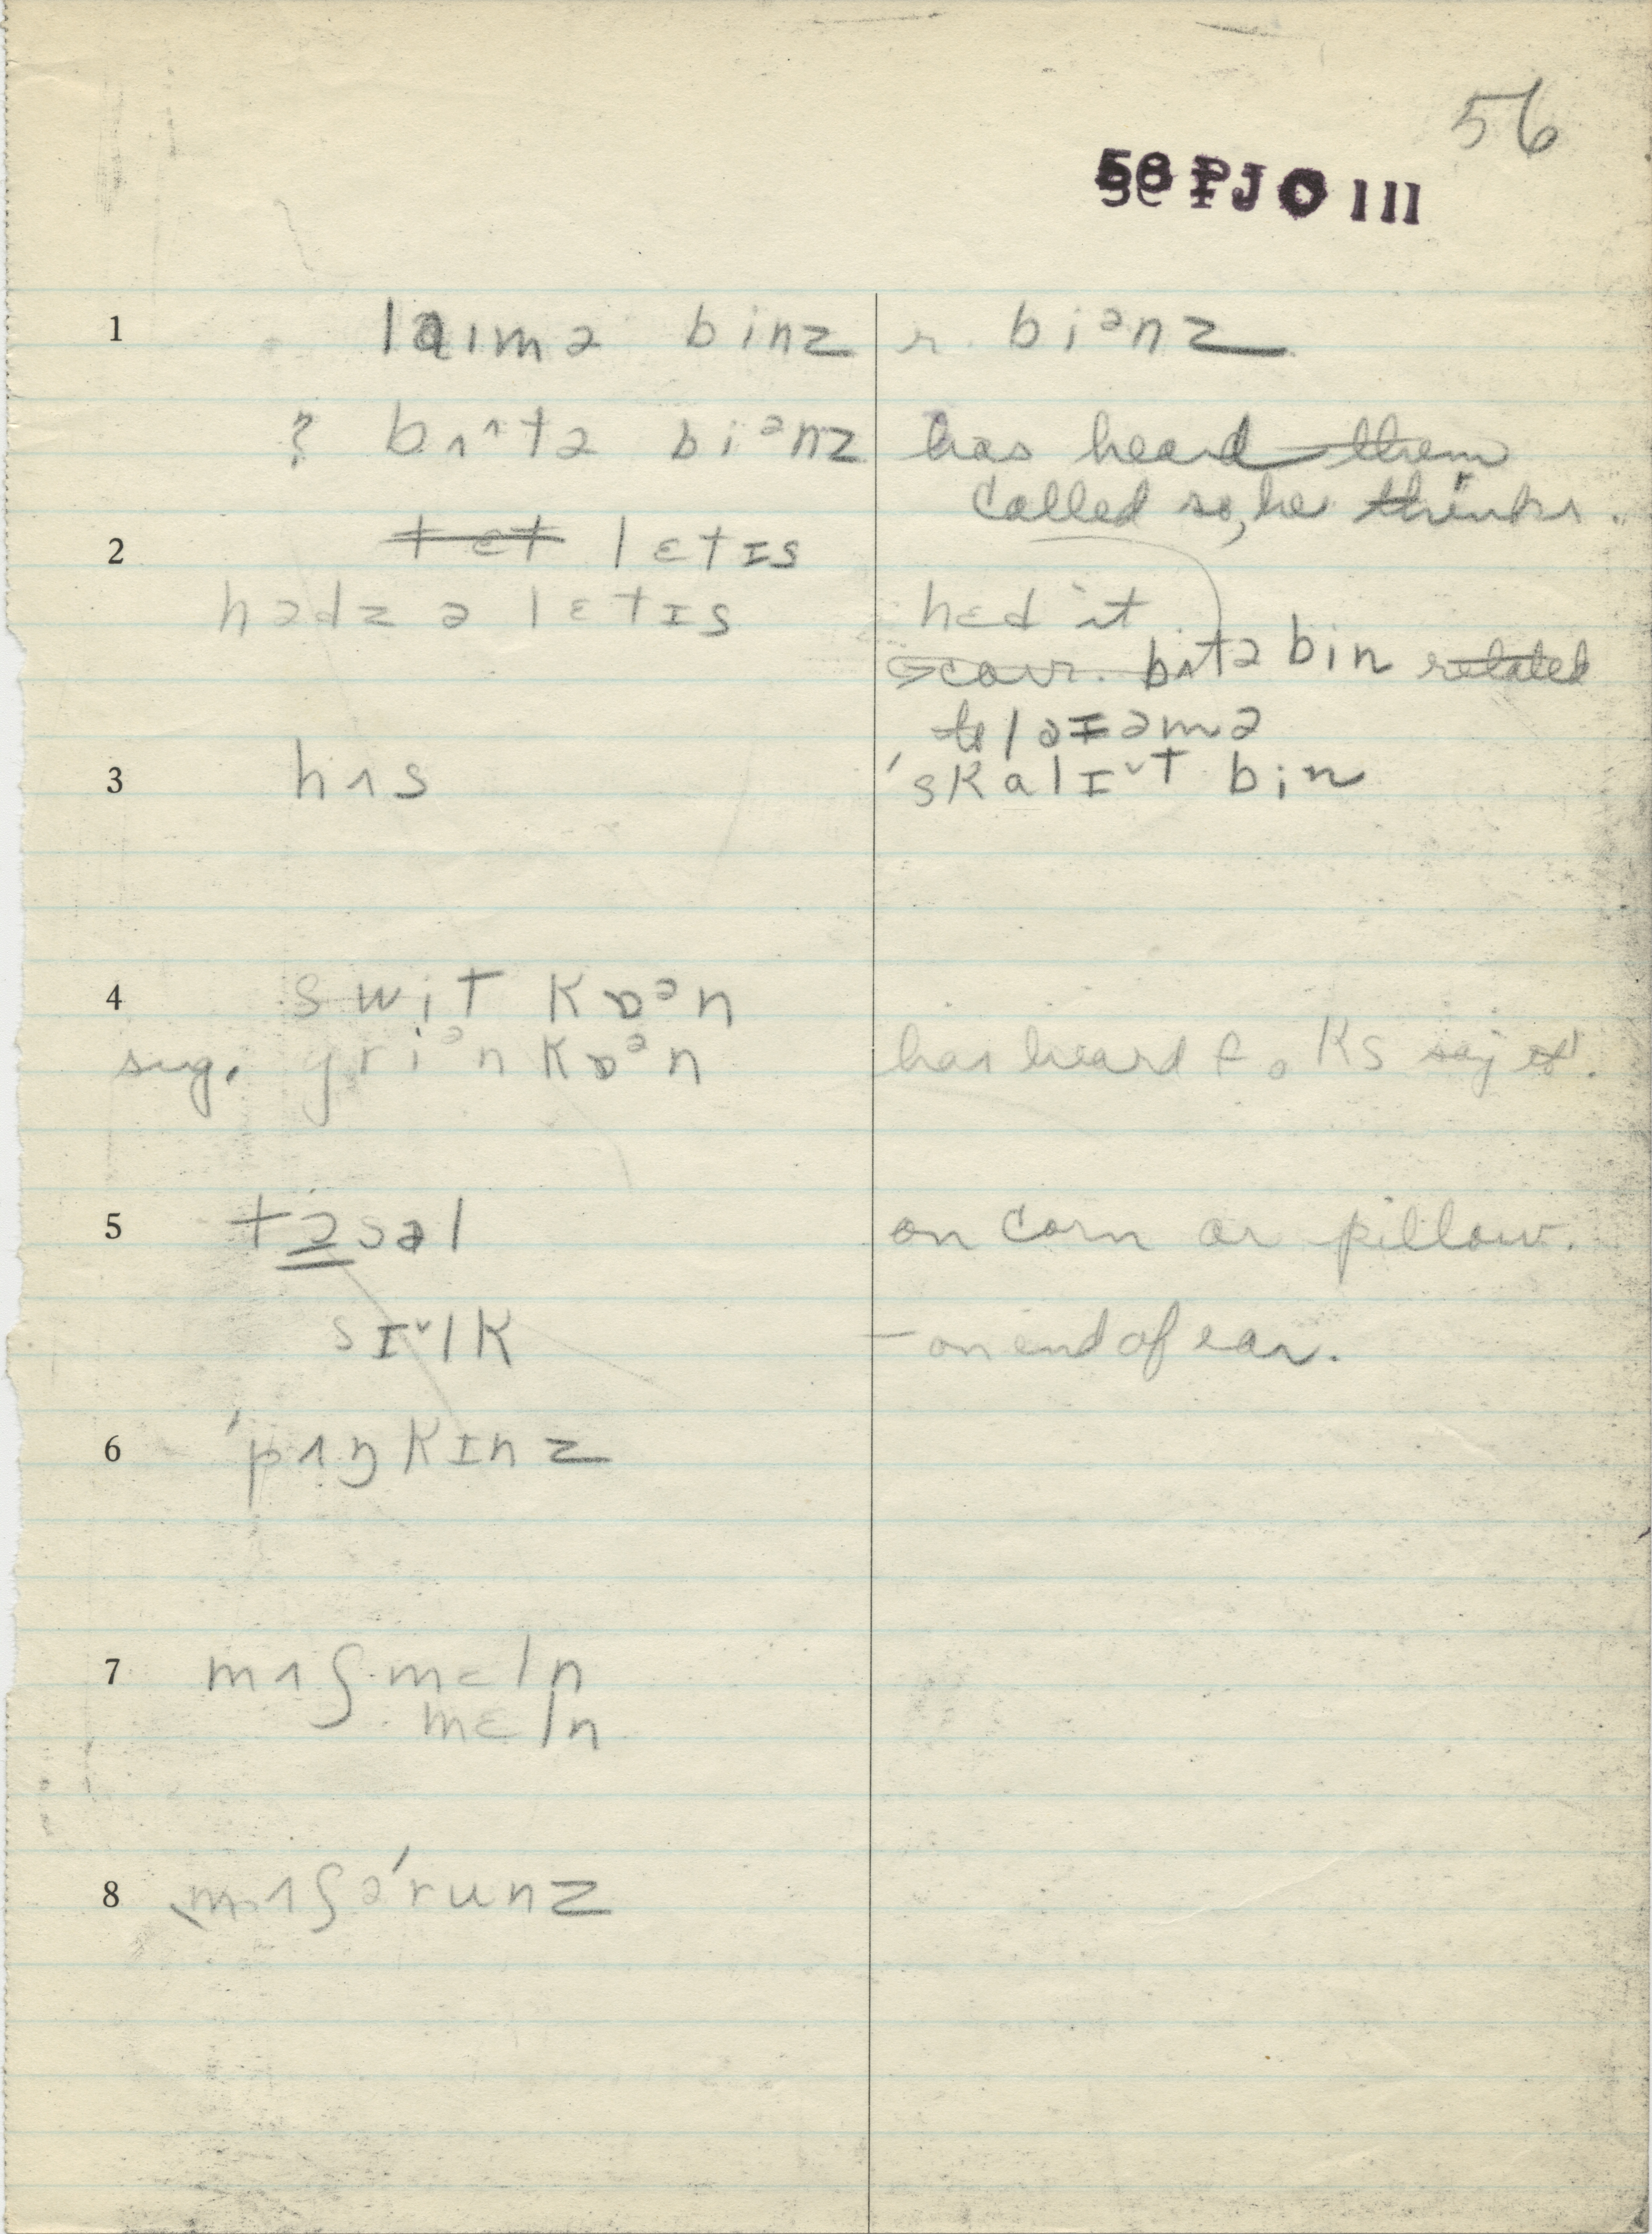 56
56 PJO III
1 laɪmə binz r. biᵊnz
? bʌ^tə biᵊnz has heard them
called so, he thinks.
2 tɛt lɛtɪs
hədz ə lɛtɪs hɛd it
corr. bʌtə bin related
to laɪəmə
3 hʌs 'skalɪˇt bin
4 swit kɒᵊn
sug. griᵊn kɒᵊn has heard foks say it.
5 tɔsəl on corn or pillow.
sɪˇlk – on end of ear.
6 'pʌŋkɪnz
7 mʌʃmɛln
mɛln
8 ˌmʌʃə'runz